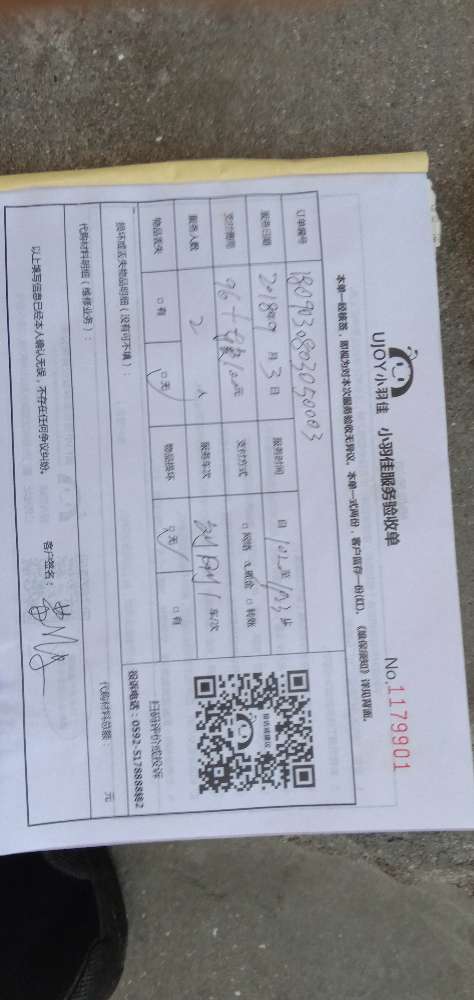 UJOY小羽佳 小羽佳服务验收单
No.1179901
本单一经核签,即视为对本次服务验收无异议。本单一式两份,客户留存一份(红)。《旅保须知》详见背面。
订单编号 1809030803050003
服务日期 2018年9月3日 服务时间 自
支付费用 96+ 元 支付方式 □网络 □现金 □转账
服务人数 2人 服务车次 车/次
物品丢失 □有 □无 物品损坏 □无 □有
扫码评价或投诉
损坏或丢失物品明细(没有可不填):
投诉电话:0592-5178888转2
代购材料明细(维修业务):
代购材料总额: 元
以上填写信息已经本人确认无误,不存在任何争议纠纷。
客户签名: